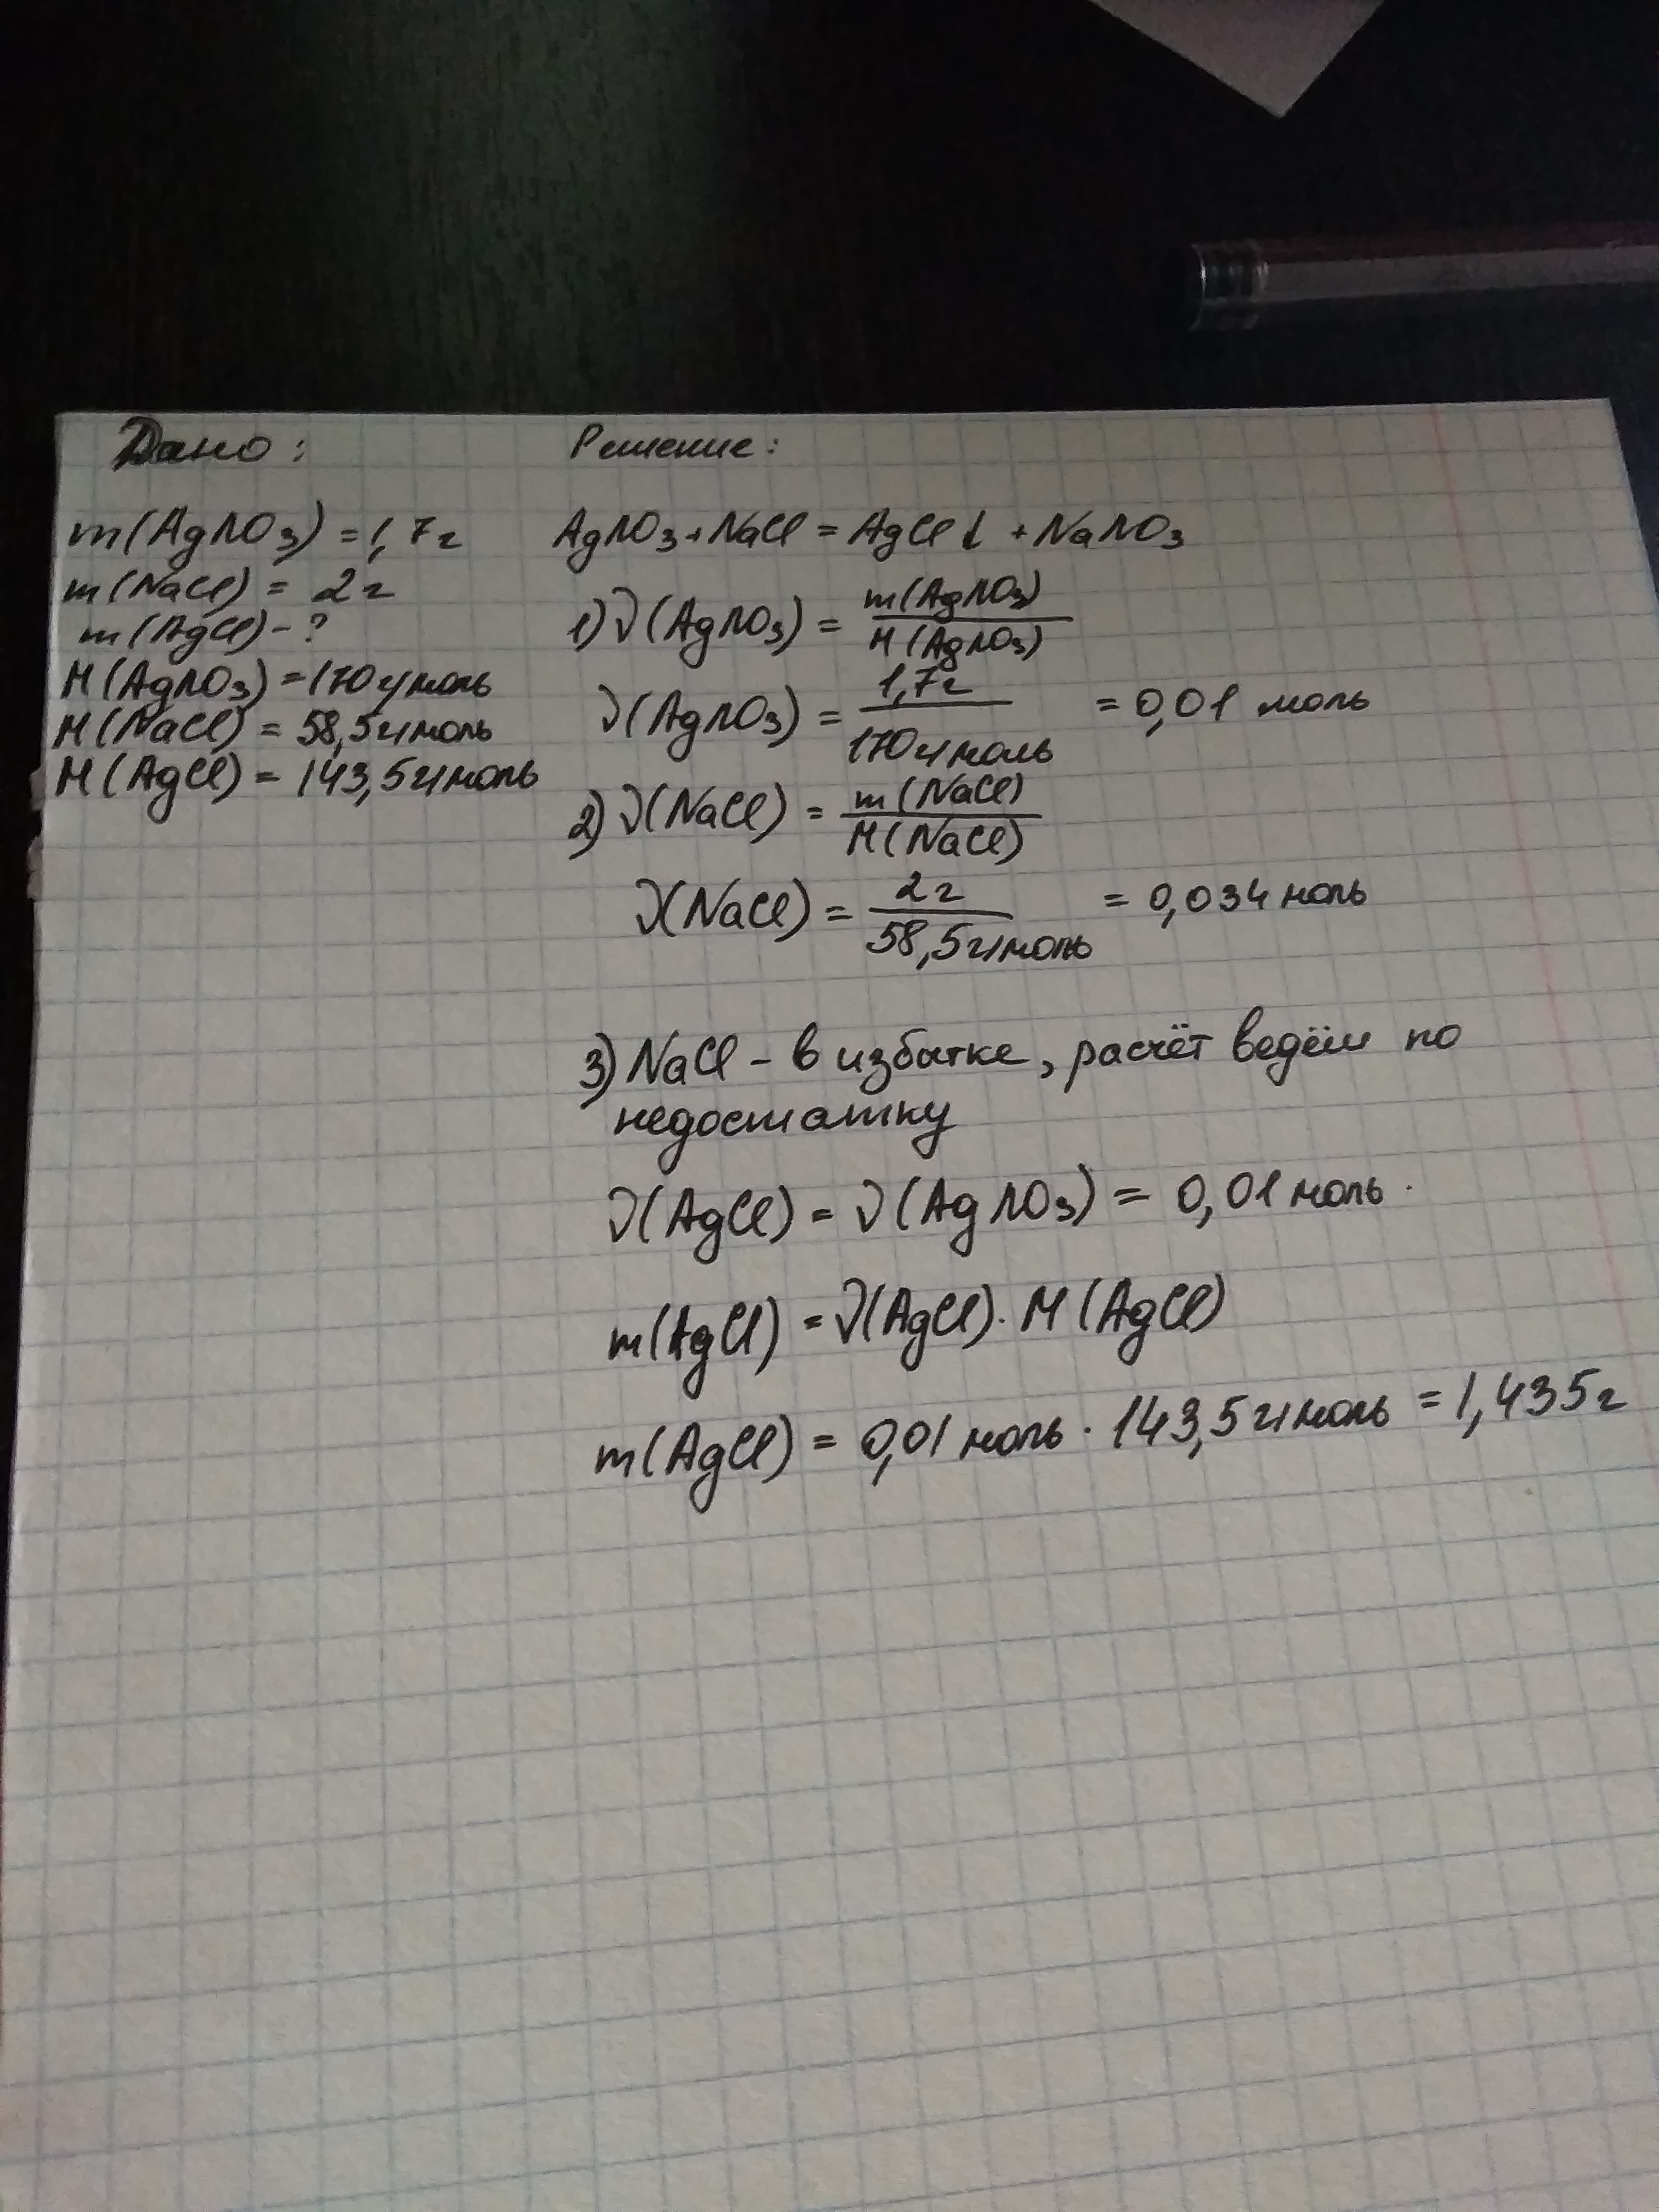 Дано:
m(AgNO3) = 1,7г
m(NaCl) = 2г
m(AgCl) - ?
M(AgNO3) = 170г/моль
M(NaCl) = 58,5г/моль
M(AgCl) = 143,5г/моль
Решение:
AgNO3 + NaCl = AgCl↓ + NaNO3
1) ν(AgNO3) = m(AgNO3) / M(AgNO3)
ν(AgNO3) = 1,7г / 170г/моль = 0,01 моль
2) ν(NaCl) = m(NaCl) / M(NaCl)
ν(NaCl) = 2г / 58,5г/моль = 0,034 моль
3) NaCl - в избытке, расчёт ведём по
недостатку
ν(AgCl) = ν(AgNO3) = 0,01 моль.
m(AgCl) = ν(AgCl) · M(AgCl)
m(AgCl) = 0,01 моль · 143,5г/моль = 1,435г